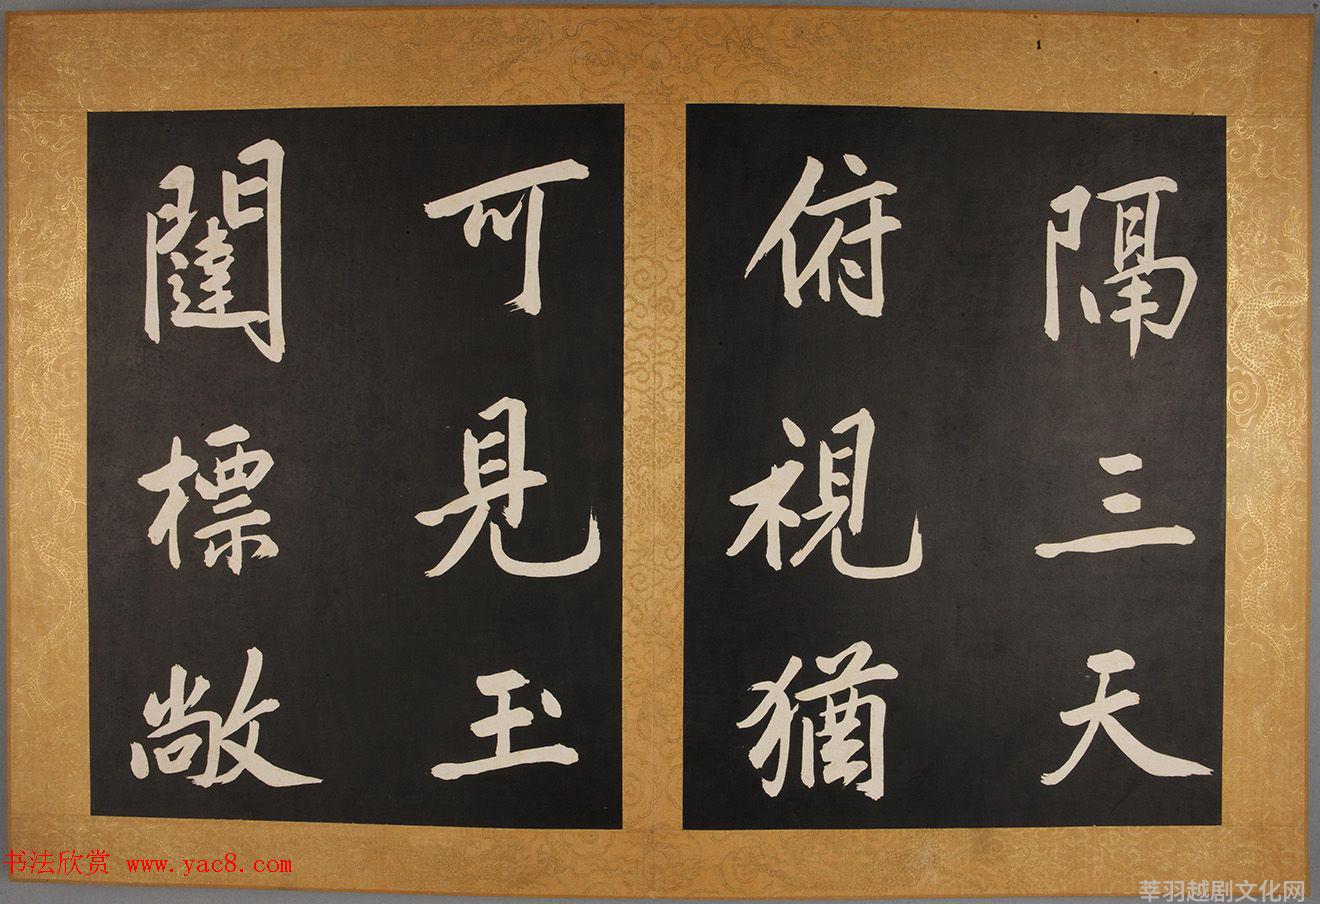 隔三天
俯視猶
可見玉
闥標敞
1
书法欣赏 www.yac8.com
莘羽越剧文化网